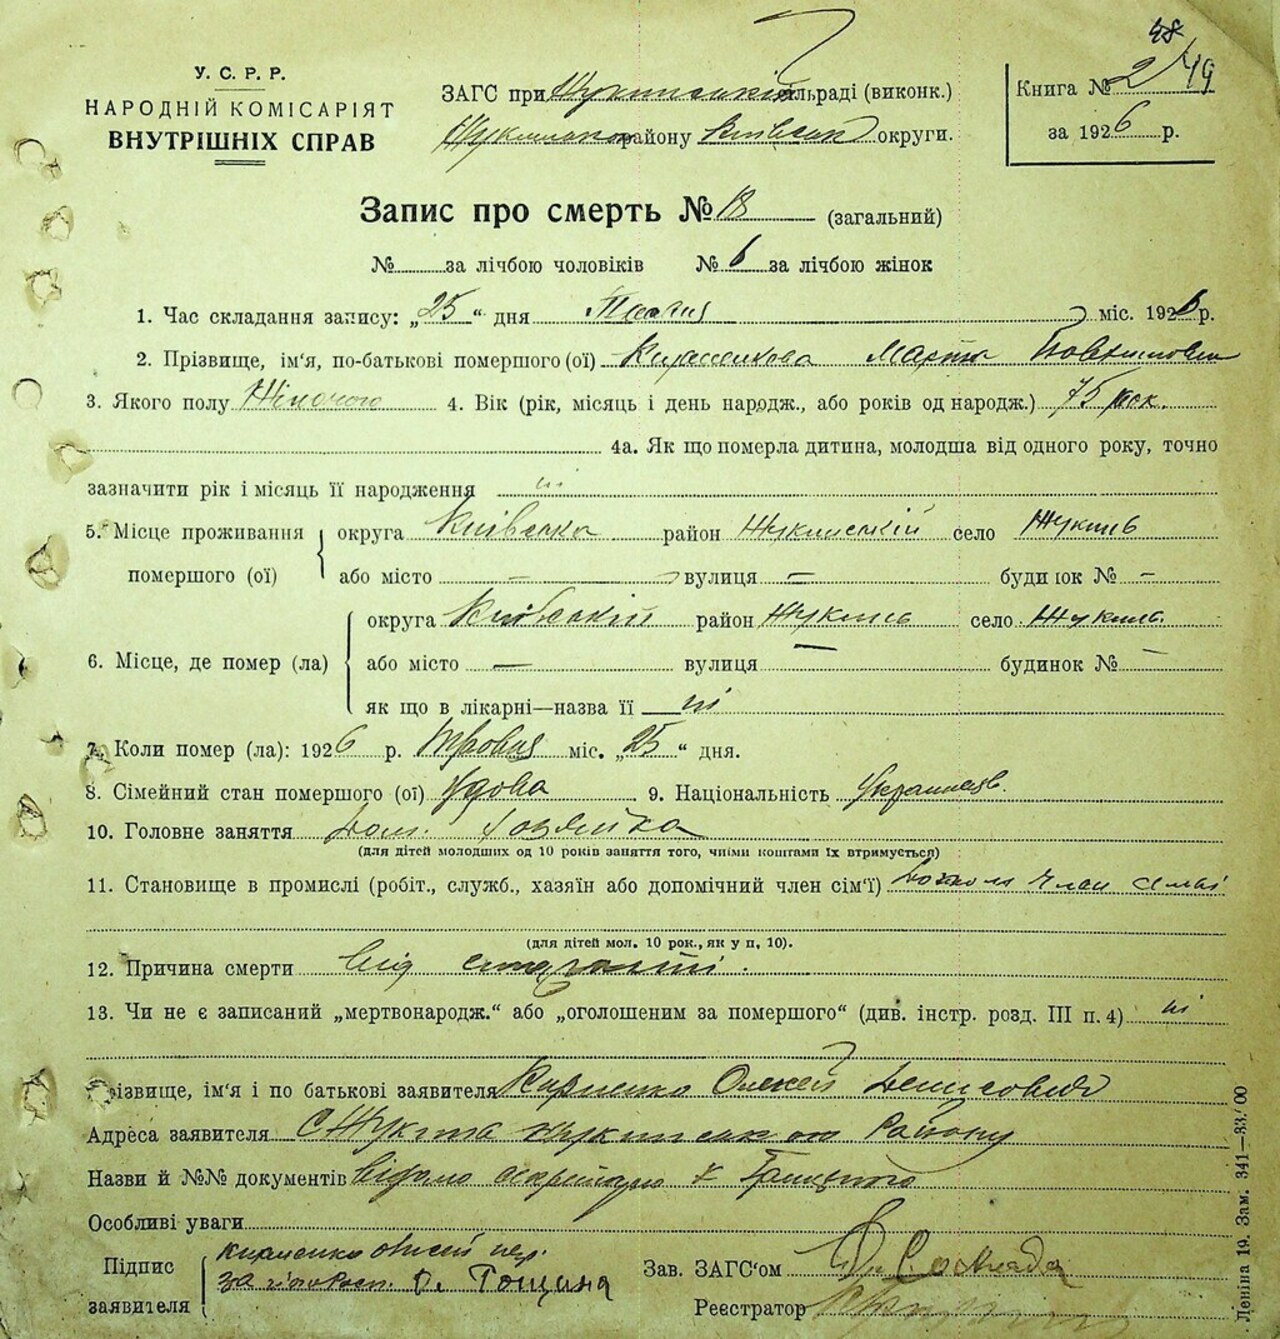 48
У. С. Р. Р.
НАРОДНІЙ КОМІСАРІЯТ
ВНУТРІШНІХ СПРАВ
ЗАГС при сільраді (виконк.)
району округи.
Книга № 2/49
за 1926 р.
Запис про смерть № 18 (загальний)
№ за лічбою чоловіків № 6 за лічбою жінок
1. Час складання запису: „25“ дня міс. 1926 р.
2. Прізвище, ім'я, по-батькові помершого (ої)
3. Якого полу Жіночого 4. Вік (рік, місяць і день народж., або років од народж.) 75 рок.
4а. Як що померла дитина, молодша від одного року, точно
зазначити рік і місяць її народження ні
5. Місце проживання помершого (ої)
округа Київська район Жукинський село Жукинь
або місто — вулиця — будинок № —
6. Місце, де помер (ла)
округа Київський район Жукинь село Жукинь
або місто — вулиця — будинок № —
як що в лікарні—назва її ні
7. Коли помер (ла): 1926 р. Травня міс. „25“ дня.
8. Сімейний стан помершого (ої) Удова 9. Національність
10. Головне заняття Дом. Хозяйка
(для дітей молодших од 10 років заняття того, чиїми коштами їх втримується)
11. Становище в промислі (робіт., служб., хазяїн або допомічний член сім'ї) член
(для дітей мол. 10 рок., як у п. 10).
12. Причина смерти від старости.
13. Чи не є записаний „мертвонародж.“ або „оголошеним за помершого“ (див. інстр. розд. III п. 4) ні
Прізвище, ім'я і по батькові заявителя Олексей Денисович
Адреса заявителя С Жукинського Району
Назви й №№ документів відомо
Особливі уваги
Підпис заявителя
Зав. ЗАГС'ом
Реєстратор
Леніна 19. Зам. 341—33.00